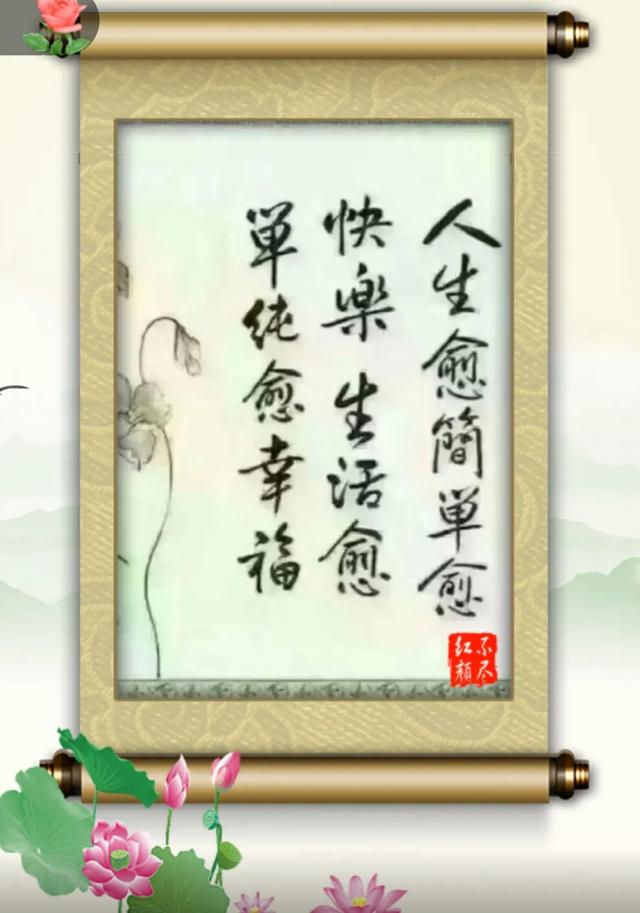 人生愈簡単愈
快樂生活愈
單纯愈幸福
不尽
红颜